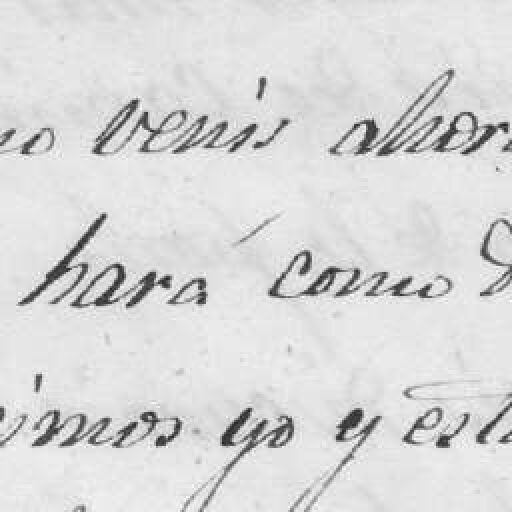 no venis ahora
hará como D
imos yo y est